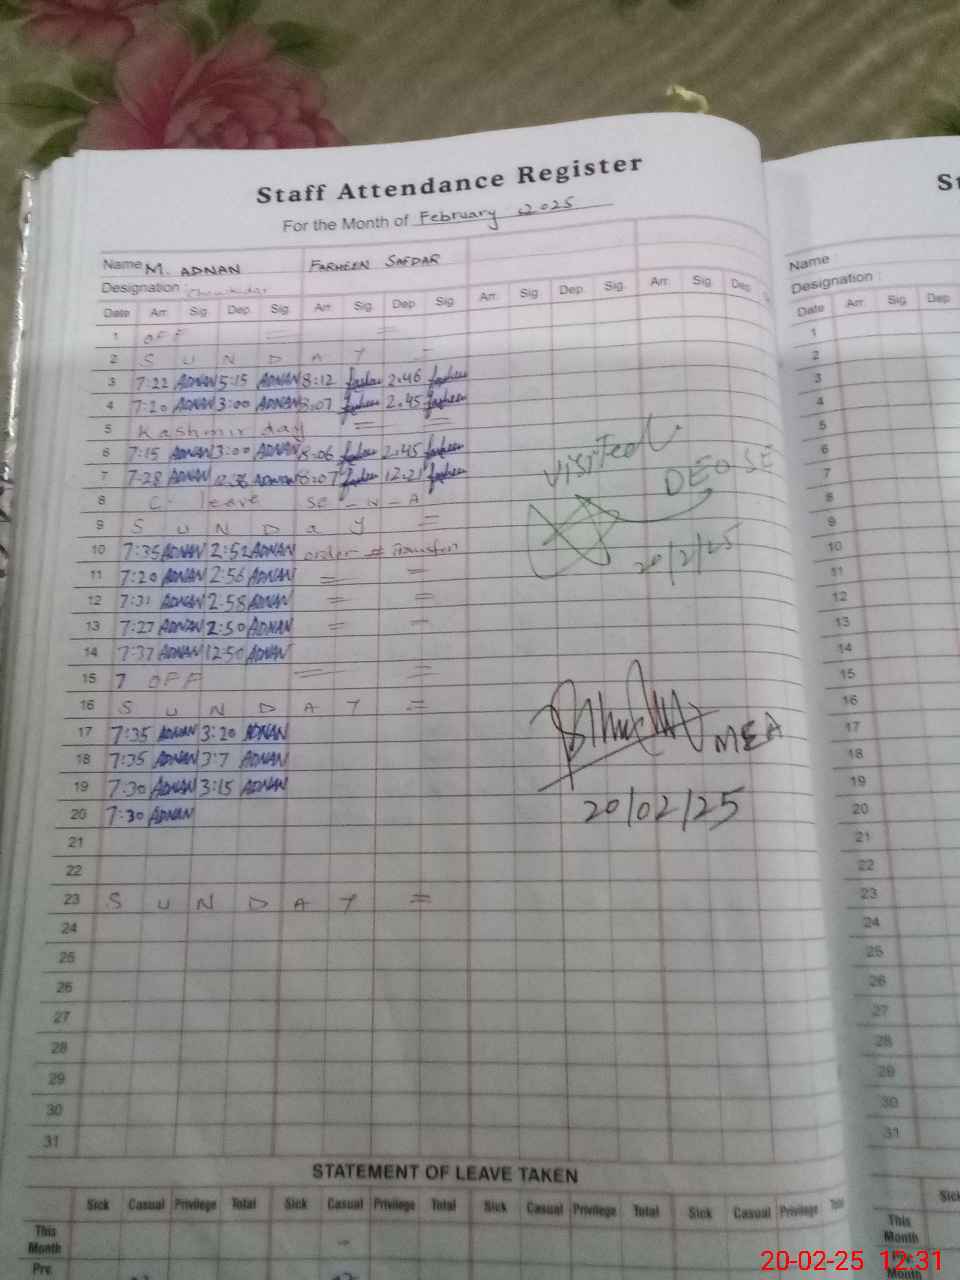 Staff Attendance Register
For the Month of February 2025
Name M. ADNAN FARHEEN SAFDAR
Designation : Chowkidar
Date Arr. Sig. Dep. Sig. Arr. Sig. Dep. Sig. Arr. Sig. Dep. Sig. Arr. Sig. Dep.
1 OFF = =
2 S U N D A Y =
3 7:22 ADNAN 5:15 ADNAN 8:12 farheen 2.46 farheen
4 7:20 ADNAN 3:00 ADNAN 8:07 farheen 2.45 farheen
5 Kashmir day = =
6 7:15 ADNAN 3:00 ADNAN 8:06 farheen 2:45 farheen
7 7:28 ADNAN ADNAN 8:07 farheen 12:21 farheen
8 C. leave
9 S U N D a y =
10 7:35 ADNAN 2:52 ADNAN order
11 7:20 ADNAN 2:56 ADNAN = =
12 7:31 ADNAN 2:58 ADNAN = =
13 7:27 ADNAN 2:50 ADNAN = =
14 7:37 ADNAN 12:50 ADNAN
15 7 OFF = =
16 S U N D A Y =
17 7:35 ADNAN 3:20 ADNAN
18 7:35 ADNAN 3:7 ADNAN
19 7:30 ADNAN 3:15 ADNAN
20 7:30 ADNAN
21
22
23 S U N D A Y =
24
25
26
27
28
29
30
31
Visited
DEO SE
20/2/25
MEA
20/02/25
STATEMENT OF LEAVE TAKEN
Sick Casual Privilege Total Sick Casual Privilege Total Sick Casual Privilege Total Sick Casual Privilege Total
This Month
Pre.
St
Name :
Designation :
Date Arr. Sig. Dep.
1
2
3
4
5
6
7
8
9
10
11
12
13
14
15
16
17
18
19
20
21
22
23
24
25
26
27
28
29
30
31
Sick
This Month
Pre.
20-02-25 12:31